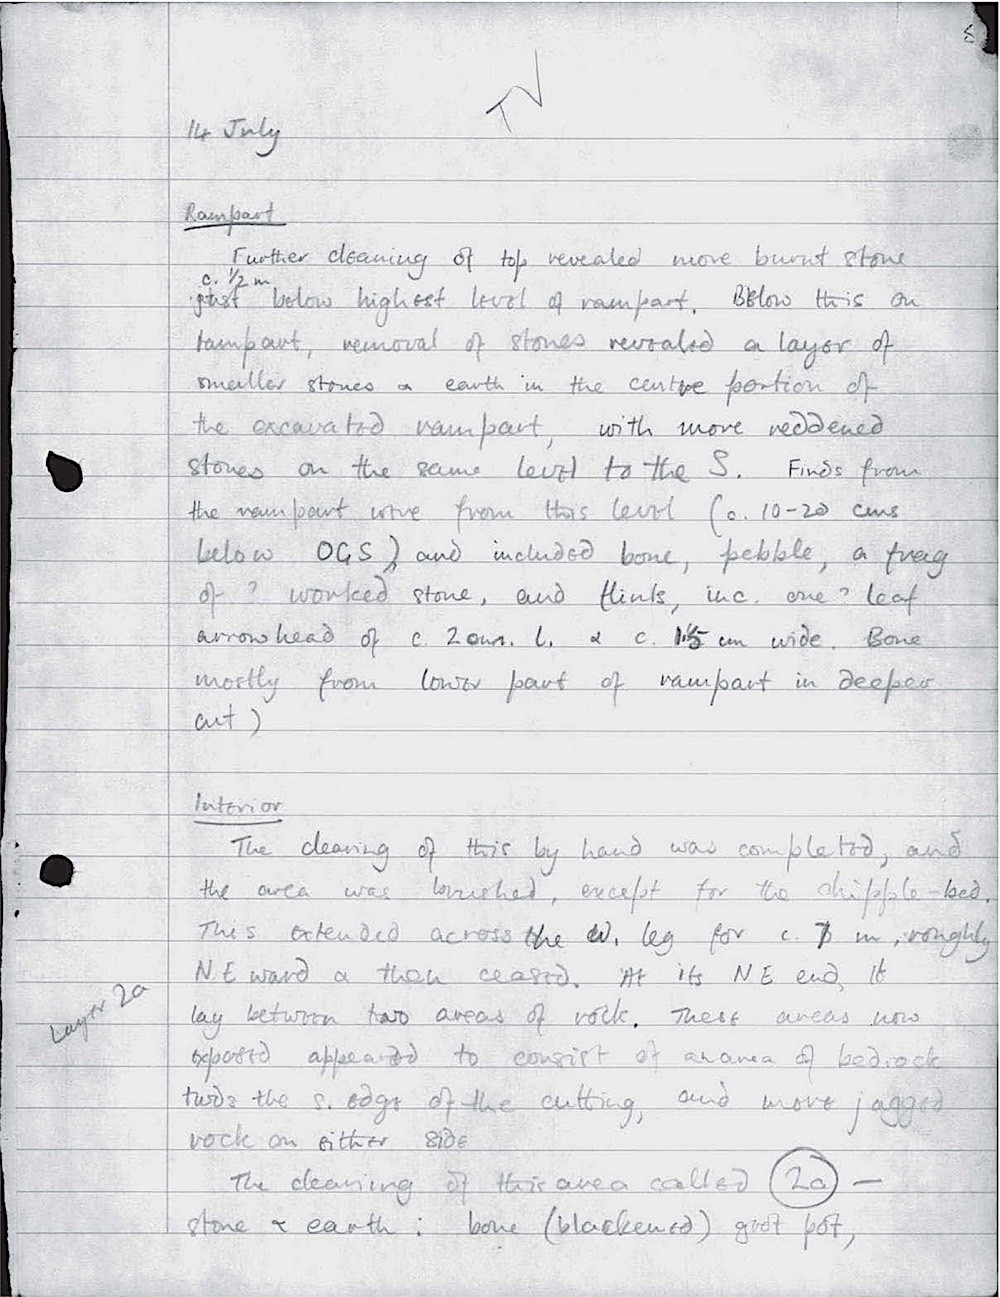 8
TV
14 July
Rampart
Further cleaning of top revealed more burnt stone
c. 1/2 m
just below highest level of rampart. Below this on
rampart, removal of stones revealed a layer of
smaller stones & earth in the centre portion of
the excavated rampart, with more reddened
stones on the same level to the S. Finds from
the rampart were from this level (c. 10-20 cms
below OGS) and included bone, pebble, a frag
of ? worked stone, and flints, inc. one ? leaf
arrowhead of c. 2 cm. l. & c. 1.5 cm wide. Bone
mostly from lower part of rampart in deeper
cut)
Interior
The cleaning of this by hand was completed, and
the area was brushed, except for the chipple-bed.
This extended across the W. leg for c. 7 m, roughly
N.E ward & then ceased. At its NE end, it
lay between two areas of rock. These areas now
Layer 2a
exposed appeared to consist of an area of bedrock
twds the S. edge of the cutting, and more jagged
rock on either side
The cleaning of this area called 2a —
stone & earth : bone (blackened) grot pot,